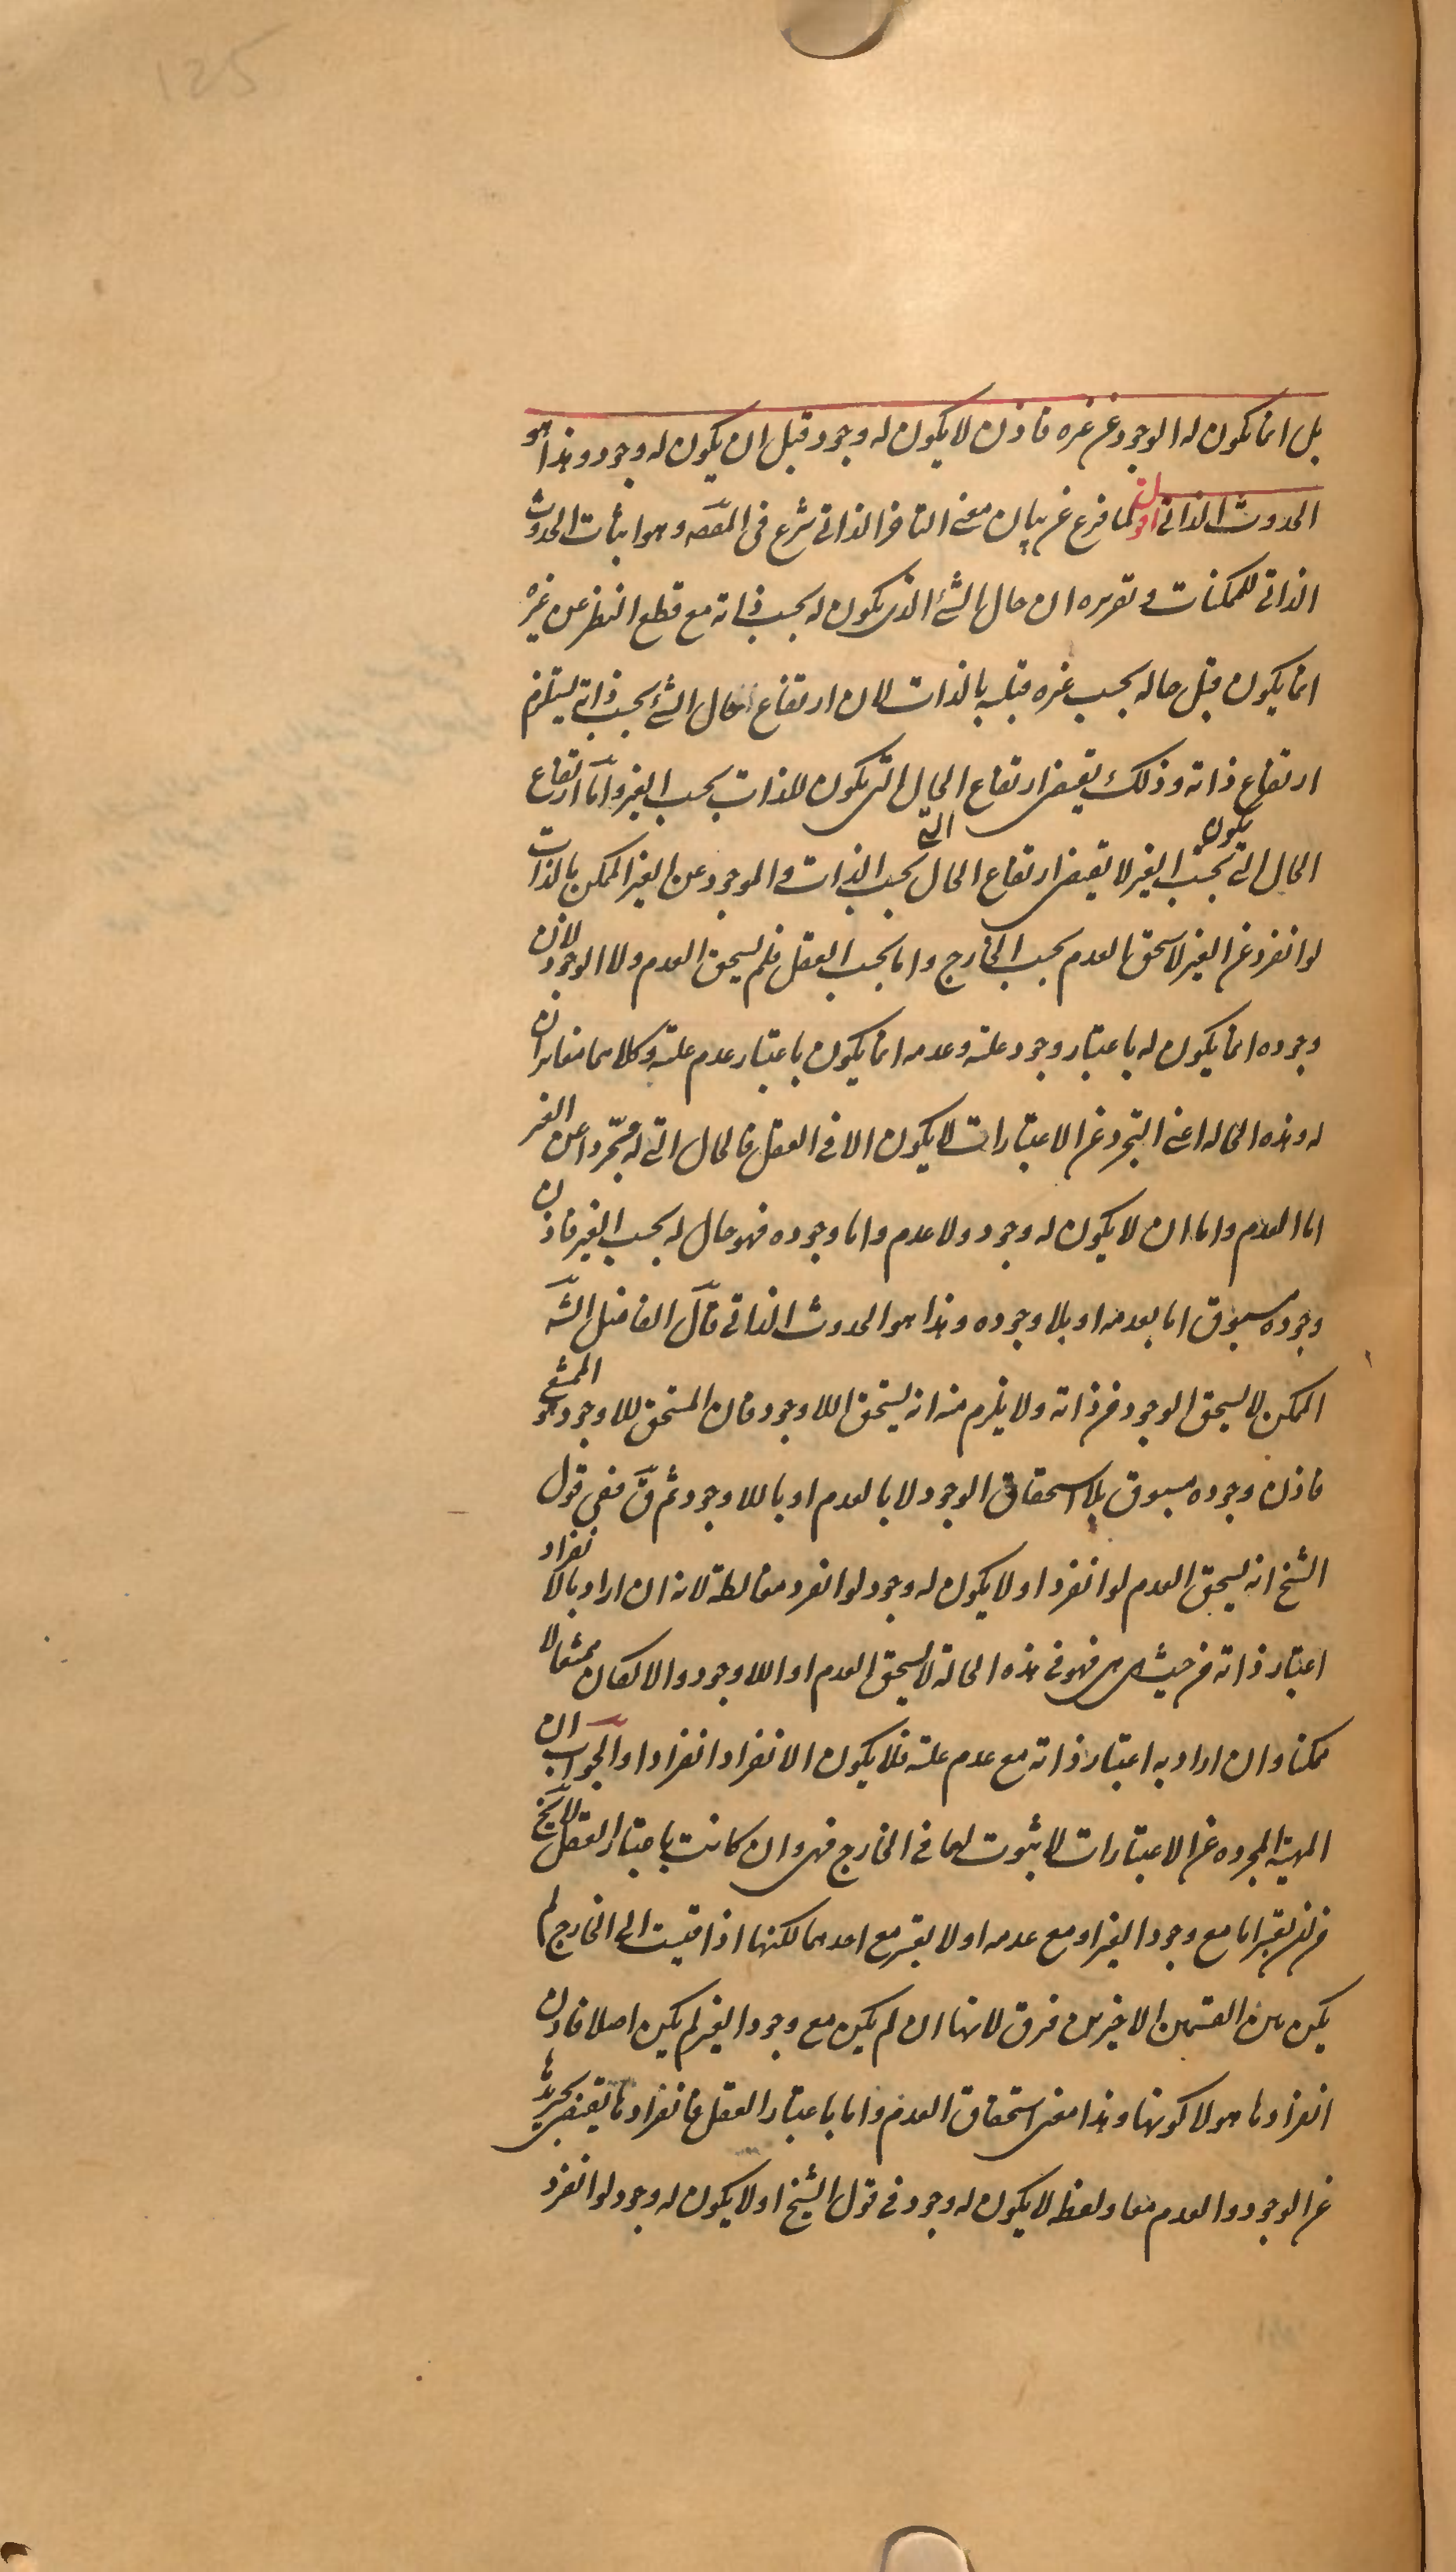 125
بل انما يكون له الوجود عن غيره فاذن لا يكون له وجود قبل ان يكون له وجود وهذا هو
الحدوث الذاتى اقول لما فرغ عن بيان معنى التاخر الذاتى شرع فى المقصد وهو اثبات الحدوث
الذاتى للممكنات وتقريره ان حال الشئ الذى يكون له بحسب ذاته مع قطع النظر عن غيره
انما يكون قبل حاله بحسب غيره قبلية بالذات لان ارتفاع حال الشئ بحسب ذاته يستلزم
ارتفاع ذاته وذلك يقتضى ارتفاع الحال التى يكون للذات بحسب الغير واما ارتفاع
الحال التى يكون بحسب الغير لا يقتضى ارتفاع الحال التى بحسب الذات والموجود عن الغير الممكن بالذات
لو انفرد عن الغير لاستحق العدم بحسب الخارج واما بحسب العقل فلم يستحق العدم ولا الوجود لان
وجوده انما يكون له باعتبار وجود علته وعدمه انما يكون باعتبار عدم علته وكلاهما مغايران
له وهذه الحالة اعنى التجرد عن الاعتبارات لا يكون الا فى العقل فالحال التى له متجردا عن الغير
اما العدم واما ان لا يكون له وجود ولا عدم واما وجوده فهو حال له بحسب الغير فاذن
وجوده مسبوق اما بعدمه او بلا وجوده وهذا هو الحدوث الذاتى قال الفاضل الش
الممكن لا يستحق الوجود من ذاته ولا يلزم منه انه يستحق اللاوجود فان المستحق للاوجود هو الممتنع
فاذن وجوده مسبوق بلا استحقاق الوجود لا بالعدم او باللاوجود ثم ق ففى قول
الشيخ انه يستحق العدم لو انفرد او لا يكون له وجود لو انفرد مغالطة لانه ان اراد بالانفراد
اعتبار ذاته من حيث هى هى فهو فى هذه الحالة لا يستحق العدم او اللاوجود والا لكان ممتنعا لا
ممكنا وان اراد به اعتبار ذاته مع عدم علته فلا يكون الانفراد انفرادا والجواب ان
المهية المجردة عن الاعتبارات لا ثبوت لها فى الخارج فهى وان كانت باعتبار العقل لا يخ
من ان يعتبر اما مع وجود الغير او مع عدمه او لا يعتبر مع احدهما لكنها اذا قيست الى الخارج لم
يكن بين القسمين الاخيرين فرق لانها ان لم يكن مع وجود الغير لم يكن اصلا فاذن
انفرادها هو لا كونها وهذا معنى استحقاق العدم واما باعتبار العقل فانفرادها يقتضى تجريدها
عن الوجود والعدم معا ولفظه لا يكون له وجود فى قول الشيخ او لا يكون له وجود لو انفرد